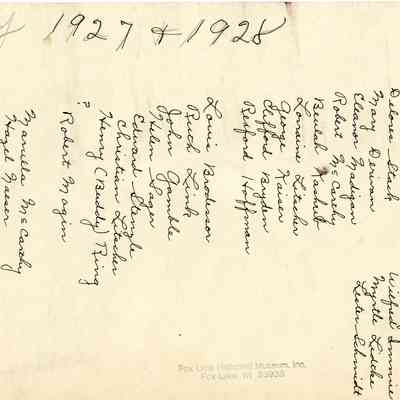 1927 & 1928
Delores Stack
Mary Derivan
Eleanor Madigan
Robert McCarthy
Beulah
Lorraine Litscher
George Kaiser
Clifford Bryden
Rexford Hoffman
Louis Brodesser
Ruth Link
John Gamble
Helen Gager
Edward Stengle
Christian Litscher
Henry (Buddy) Ring
?
Robert Magin
Marilla McCarthy
Hazel Nasser
Wilfred
Myrtle Liedtke
Lester Schmidt
Fox Lake Historical Museum, Inc.
Fox Lake, WI 53933